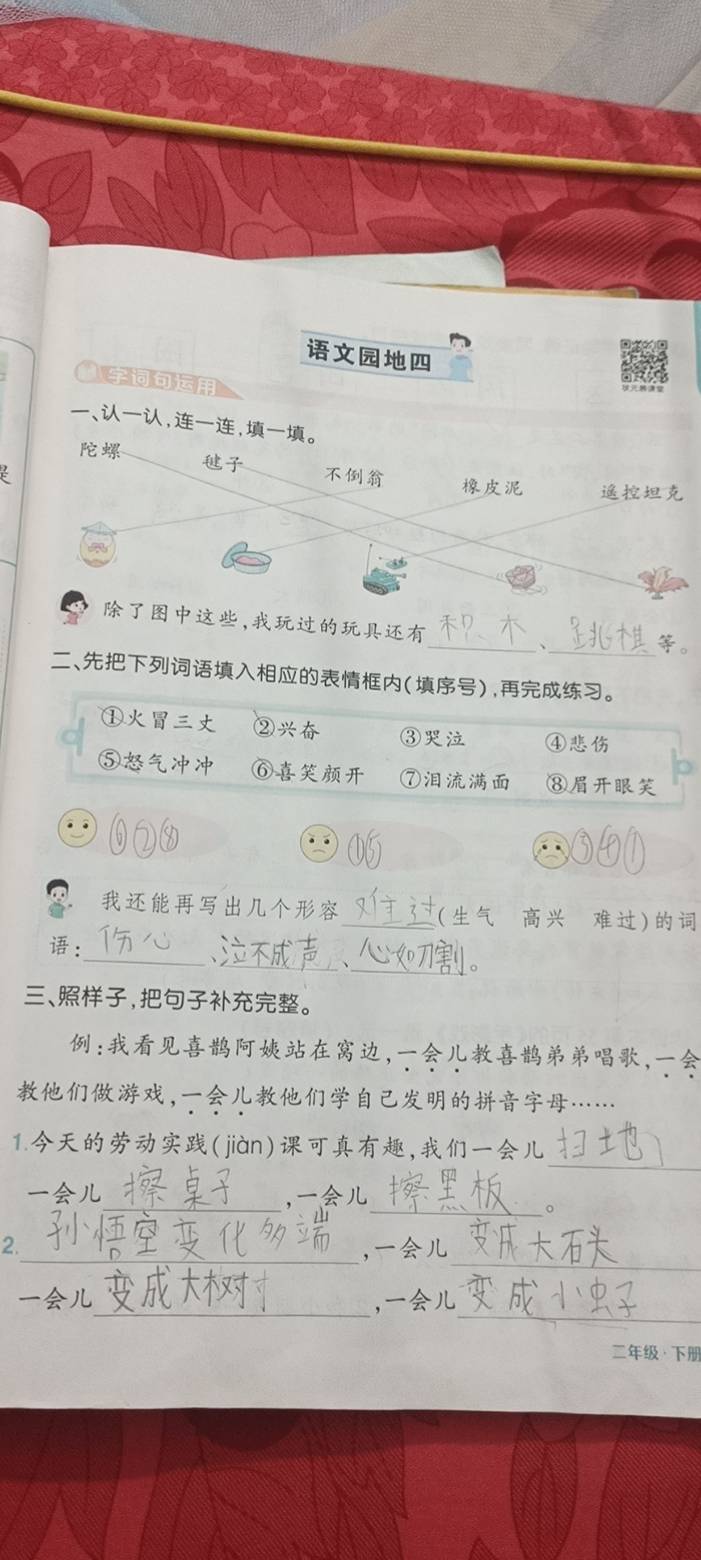 语文园地四
状元慕课堂
字词句运用
一、认一认,连一连,填一填。
陀螺 毽子 不倒翁 橡皮泥 遥控坦克
除了图中这些,我玩过的玩具还有积木、跳棋等。
二、先把下列词语填入相应的表情框内(填序号),再完成练习。
①火冒三丈 ②兴奋 ③哭泣 ④悲伤
⑤怒气冲冲 ⑥喜笑颜开 ⑦泪流满面 ⑧眉开眼笑
⑥②⑧ ①⑤ ③④⑦
我还能再写出几个形容难过(生气 高兴 难过)的词
语:伤心、泣不成声、心如刀割。
三、照样子,把句子补充完整。
例:我看见喜鹊阿姨站在窝边,一会儿教喜鹊弟弟唱歌,一会
教他们做游戏,一会儿教他们学自己发明的拼音字母……
1.今天的劳动实践(jiàn)课可真有趣,我们一会儿扫地,
一会儿擦桌子,一会儿擦黑板。
2.孙悟空变化多端,一会儿变成大石头
一会儿变成大树,一会儿变成小虫子
二年级·下册